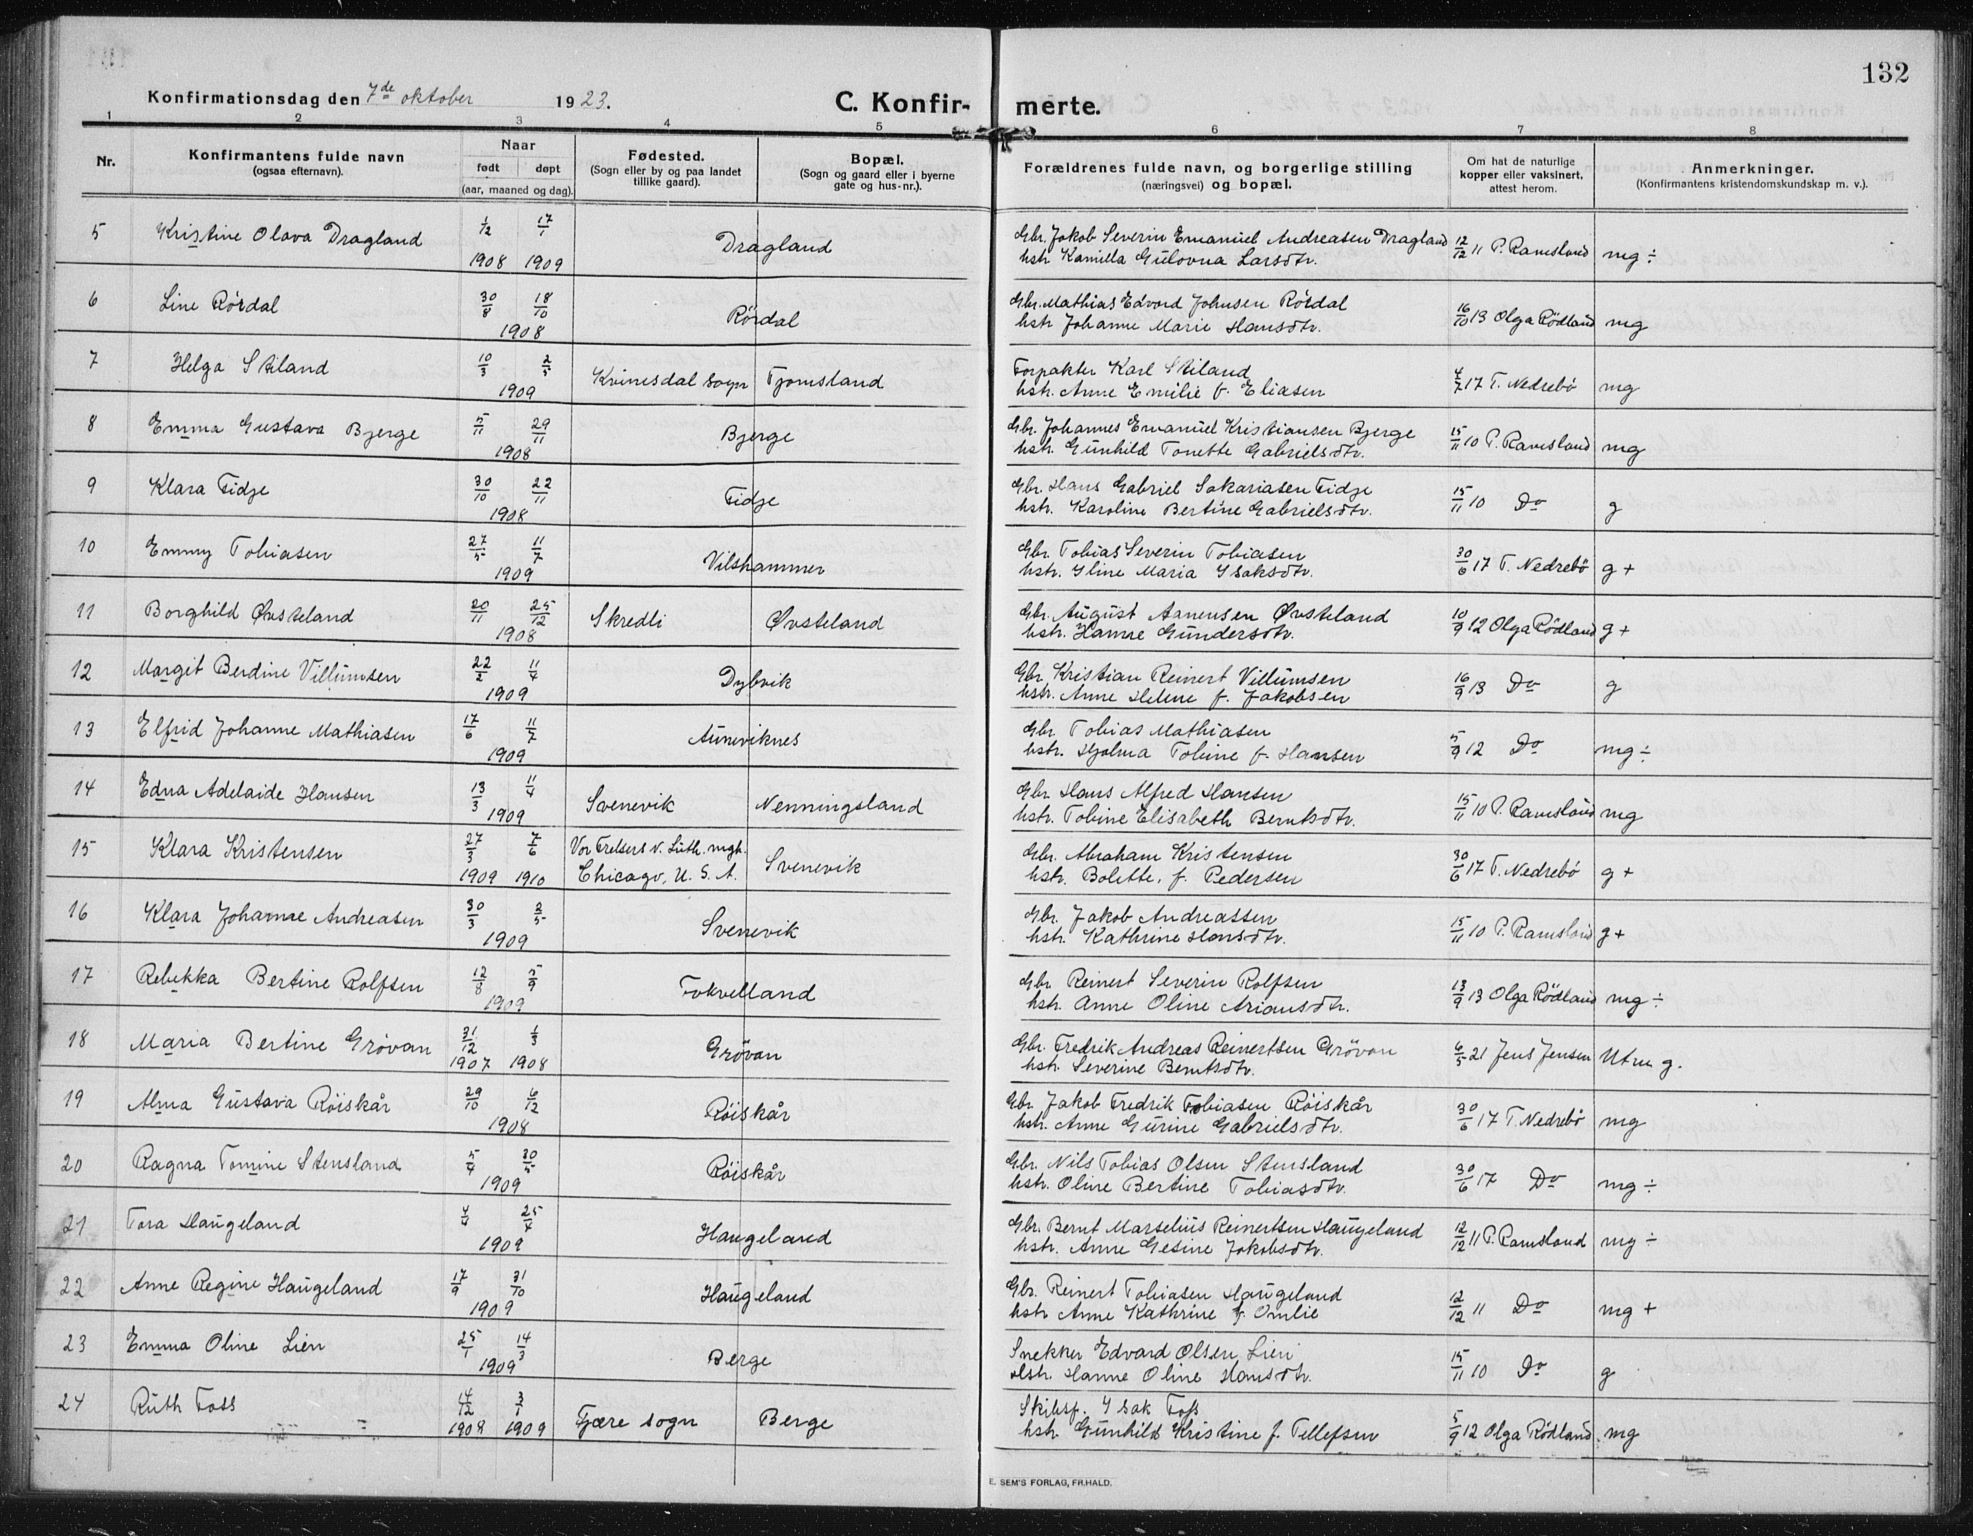 132
Konfirmationsdag den 7de oktober 1923.
C. Konfir- merte.
1 2 3 4 5 6 7 8
Nr. Konfirmantens fulde navn (ogsaa efternavn). Naar født døpt (aar, maaned og dag). Fødested. (Sogn eller by og paa landet tillike gaard). Bopæl. (Sogn og gaard eller i byerne gate og hus-nr.). Forældrenes fulde navn, og borgerlige stilling (næringsvei) og bopæl. Om hat de naturlige kopper eller vaksinert, attest herom. Anmerkninger. (Konfirmantens kristendomskundskap m. v.).
5 Kristine Olava Dragland 1/12 1908 17/1 1909 Dragland Gbr. Jakob Severin Emanuel Andreasen Dragland 12/12 11 P. Ramsland mg ÷
hstr. Kamilla Gulovna Larsdtr.
6 Line Rördal 30/8 18/10 1908 Rördal Gbr. Mathias Edvard Johnsen Rördal 16/10 13 Olga Rödland mg
hstr. Johanne Marie Hansdtr.
7 Helga Stiland 10/3 2/5 1909 Kvinesdal sogn Tjomsland Forpakter Karl Stiland 4/7 17 T. Nedrebö mg
hstr. Anne Emilie f. Eliasen
8 Emma Gustava Bjerge 5/11 29/11 1908 Bjerge Gbr. Johannes Emanuel Kristiansen Bjerge 15/11 10 P. Ramsland mg
hstr. Gunhild Tonette Gabrielsdtr.
9 Klara Fidje 30/10 22/11 1908 Fidje Gbr. Hans Gabriel Sakariasen Fidje 15/11 10 Do g
hstr. Karoline Bertine Gabrielsdtr.
10 Emmy Tobiasen 27/5 11/7 1909 Vilshammer Gbr. Tobias Severin Tobiasen 30/6 17 T. Nedrebö g +
hstr. Iline Maria Isaksdtr.
11 Borghild Øvsteland 20/11 25/12 1908 Skredli Øvsteland Gbr. August Aanensen Øvsteland 10/9 12 Olga Rödland g +
hstr. Hanne Gundersdtr.
12 Margit Berdine Villumsen 22/2 11/4 1909 Dybvik Gbr. Kristian Reinert Villumsen 16/9 13 Do g
hstr. Anne Helene f. Jakobsen
13 Elfrid Johanne Mathiasen 17/6 11/7 1909 Auneviknes Gbr. Tobias Mathiasen 5/9 12 Do mg ÷
hstr. Hjalma Tobine f. Hansen
14 Edna Adelaide Hansen 13/3 11/4 1909 Svenevik Nenningsland Gbr. Hans Alfred Hansen 15/11 10 P. Ramsland mg
hstr. Tobine Elisabeth Berntsdtr.
15 Klara Kristensen 27/3 1909 7/6 1910 Vor Frelsers N. Luth. mgh. Chicago, U. S. A. Svenevik Gbr. Abraham Kristensen 30/6 17 T. Nedrebö g +
hstr. Bolette, f. Pedersen
16 Klara Johanne Andreasen 30/3 2/5 1909 Svenevik Gbr. Jakob Andreassen 15/11 10 P. Ramsland g +
hstr. Kathrine Hansdtr.
17 Rebekka Bertine Rolfsen 12/8 5/9 1909 Fokvelland Gbr. Reinert Severin Rolfsen 13/9 13 Olga Rödland mg ÷
hstr. Anne Oline Ariansdtr.
18 Maria Bertine Grövan 31/12 1907 1/3 1908 Grövan Gbr. Fredrik Andreas Reinertsen Grövan 6/5 21 Jens Jensen Utm g.
hstr. Severine Berntsdtr.
19 Alma Gustava Röiskår 29/10 6/12 1908 Röiskår Gbr. Jakob Fredrik Tobiasen Röiskår 30/6 17 T. Nedrebö mg
hstr. Anne Gurine Gabrielsdtr.
20 Ragna Tomine Stensland 5/4 20/5 1909 Röiskår Gbr. Nils Tobias Olsen Stensland 30/6 17 Do mg ÷
hstr. Oline Bertine Tobiasdtr.
21 Tora Haugeland 4/4 25/4 1909 Haugeland Gbr. Bernt Marselius Reinertsen Haugeland 12/12 11 P. Ramsland mg ÷
hstr. Anne Gesine Jakobsdtr.
22 Anne Regine Haugeland 17/9 31/10 1909 Haugeland Gbr. Reinert Tobiasen Haugeland 12/12 11 Do mg +
hstr Anne Kathrine f. Omlie
23 Emma Oline Lien 25/1 14/3 1909 Berge Snekker Edvard Olsen Lien 15/11 10 Do g
Hstr. Hanne Oline Hansdtr.
24 Ruth Foss 14/12 1908 3/1 1909 Fjære sogn Berge Skibsf. Isak Foss 5/9 12 Olga Rödland mg
hstr. Gunhild Kristine f. Tellefsen
E. SEM'S FORLAG, FR.HALD.